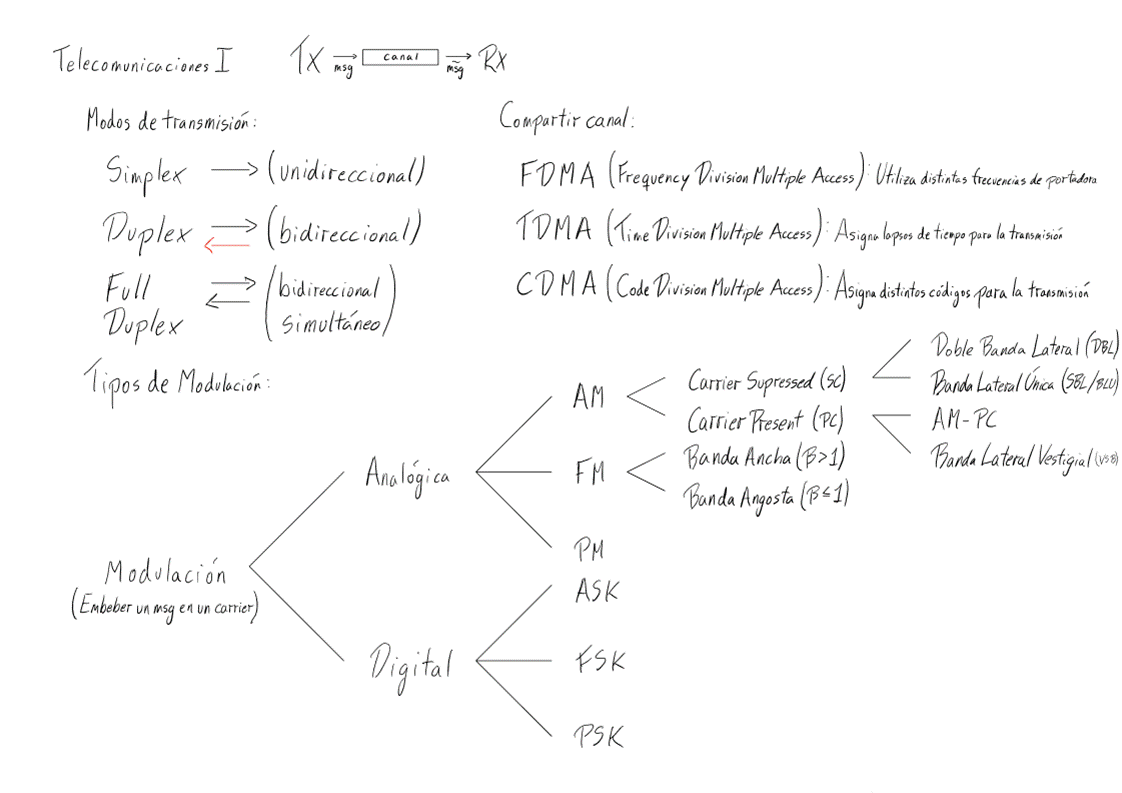 Telecomunicaciones I
Tx msg canal m̃sg Rx
Modos de transmisión:
Simplex (unidireccional)
Duplex (bidireccional)
Full Duplex (bidireccional simultáneo)
Compartir canal:
FDMA (Frequency Division Multiple Access): Utiliza distintas frecuencias de portadora
TDMA (Time Division Multiple Access): Asigna lapsos de tiempo para la transmisión
CDMA (Code Division Multiple Access): Asigna distintos códigos para la transmisión
Tipos de Modulación:
Modulación
(Embeber un msg en un carrier)
Analógica
AM
Carrier Supressed (SC)
Doble Banda Lateral (DBL)
Banda Lateral Única (SBL/BLU)
Carrier Present (PC)
AM-PC
Banda Lateral Vestigial (VSB)
FM
Banda Ancha (β>1)
Banda Angosta (β≤1)
PM
Digital
ASK
FSK
PSK